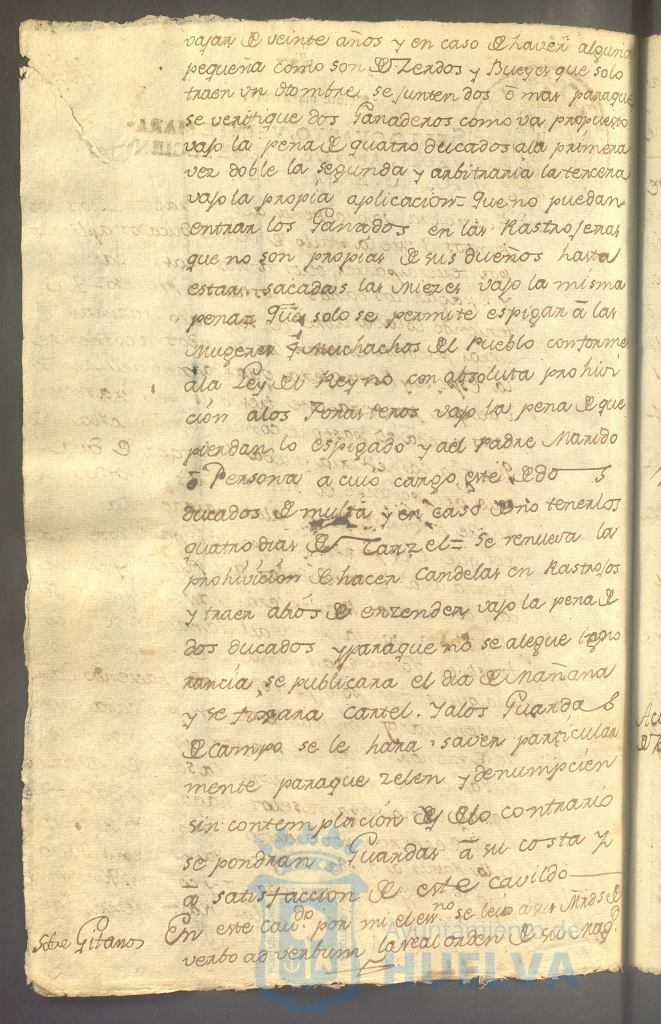 vajar de veinte años y en caso de haver alguna
pequeña como son de Zerdos y Bueyes que solo
traen un Hombre se junten dos ó mas paraque
se verifique dos Ganaderos como va propuesto
vajo la pena de quatro ducados ala primera
vez doble la segunda y arbitraria la tercera
vajo la propia aplicacion= Que no puedan
entrar los Ganados en las Rastrojeras
que no son propias de sus dueños hasta
estar sacadas las Miezes vajo la misma
pena= Que solo se permite espigar á las
Mugeres y Muchachos del Pueblo conforme
ala Ley del Reyno con absoluta prohivi
ción alos Forasteros vajo la pena de que
pierdan lo espigado y ael Padre Marido
ó Persona a cuio cargo este de dos
ducados de multa y en caso de no tenerlos
quatro dias de Carzel= Se renueva la
prohivición de hacer Candelas en Rastrojos
y traer abios de enzender vajo la pena de
dos ducados y paraque no se alegue igno
rancia se publicara el dia de Mañana
y se fixara Cartel. Y alos Guardas
de campo se le hara saver particular
mente paraque zelen y denumpcien
sin contemplación y de lo contrario
se pondran Guardas á su costa y
satisfaccion de este Cavildo
Sobre Gitanos En este cavdo. por mi el esno. se leio a sus Mrds de
verbo ad verbum la real orden de su Magd.
Ayuntamiento de
HUELVA